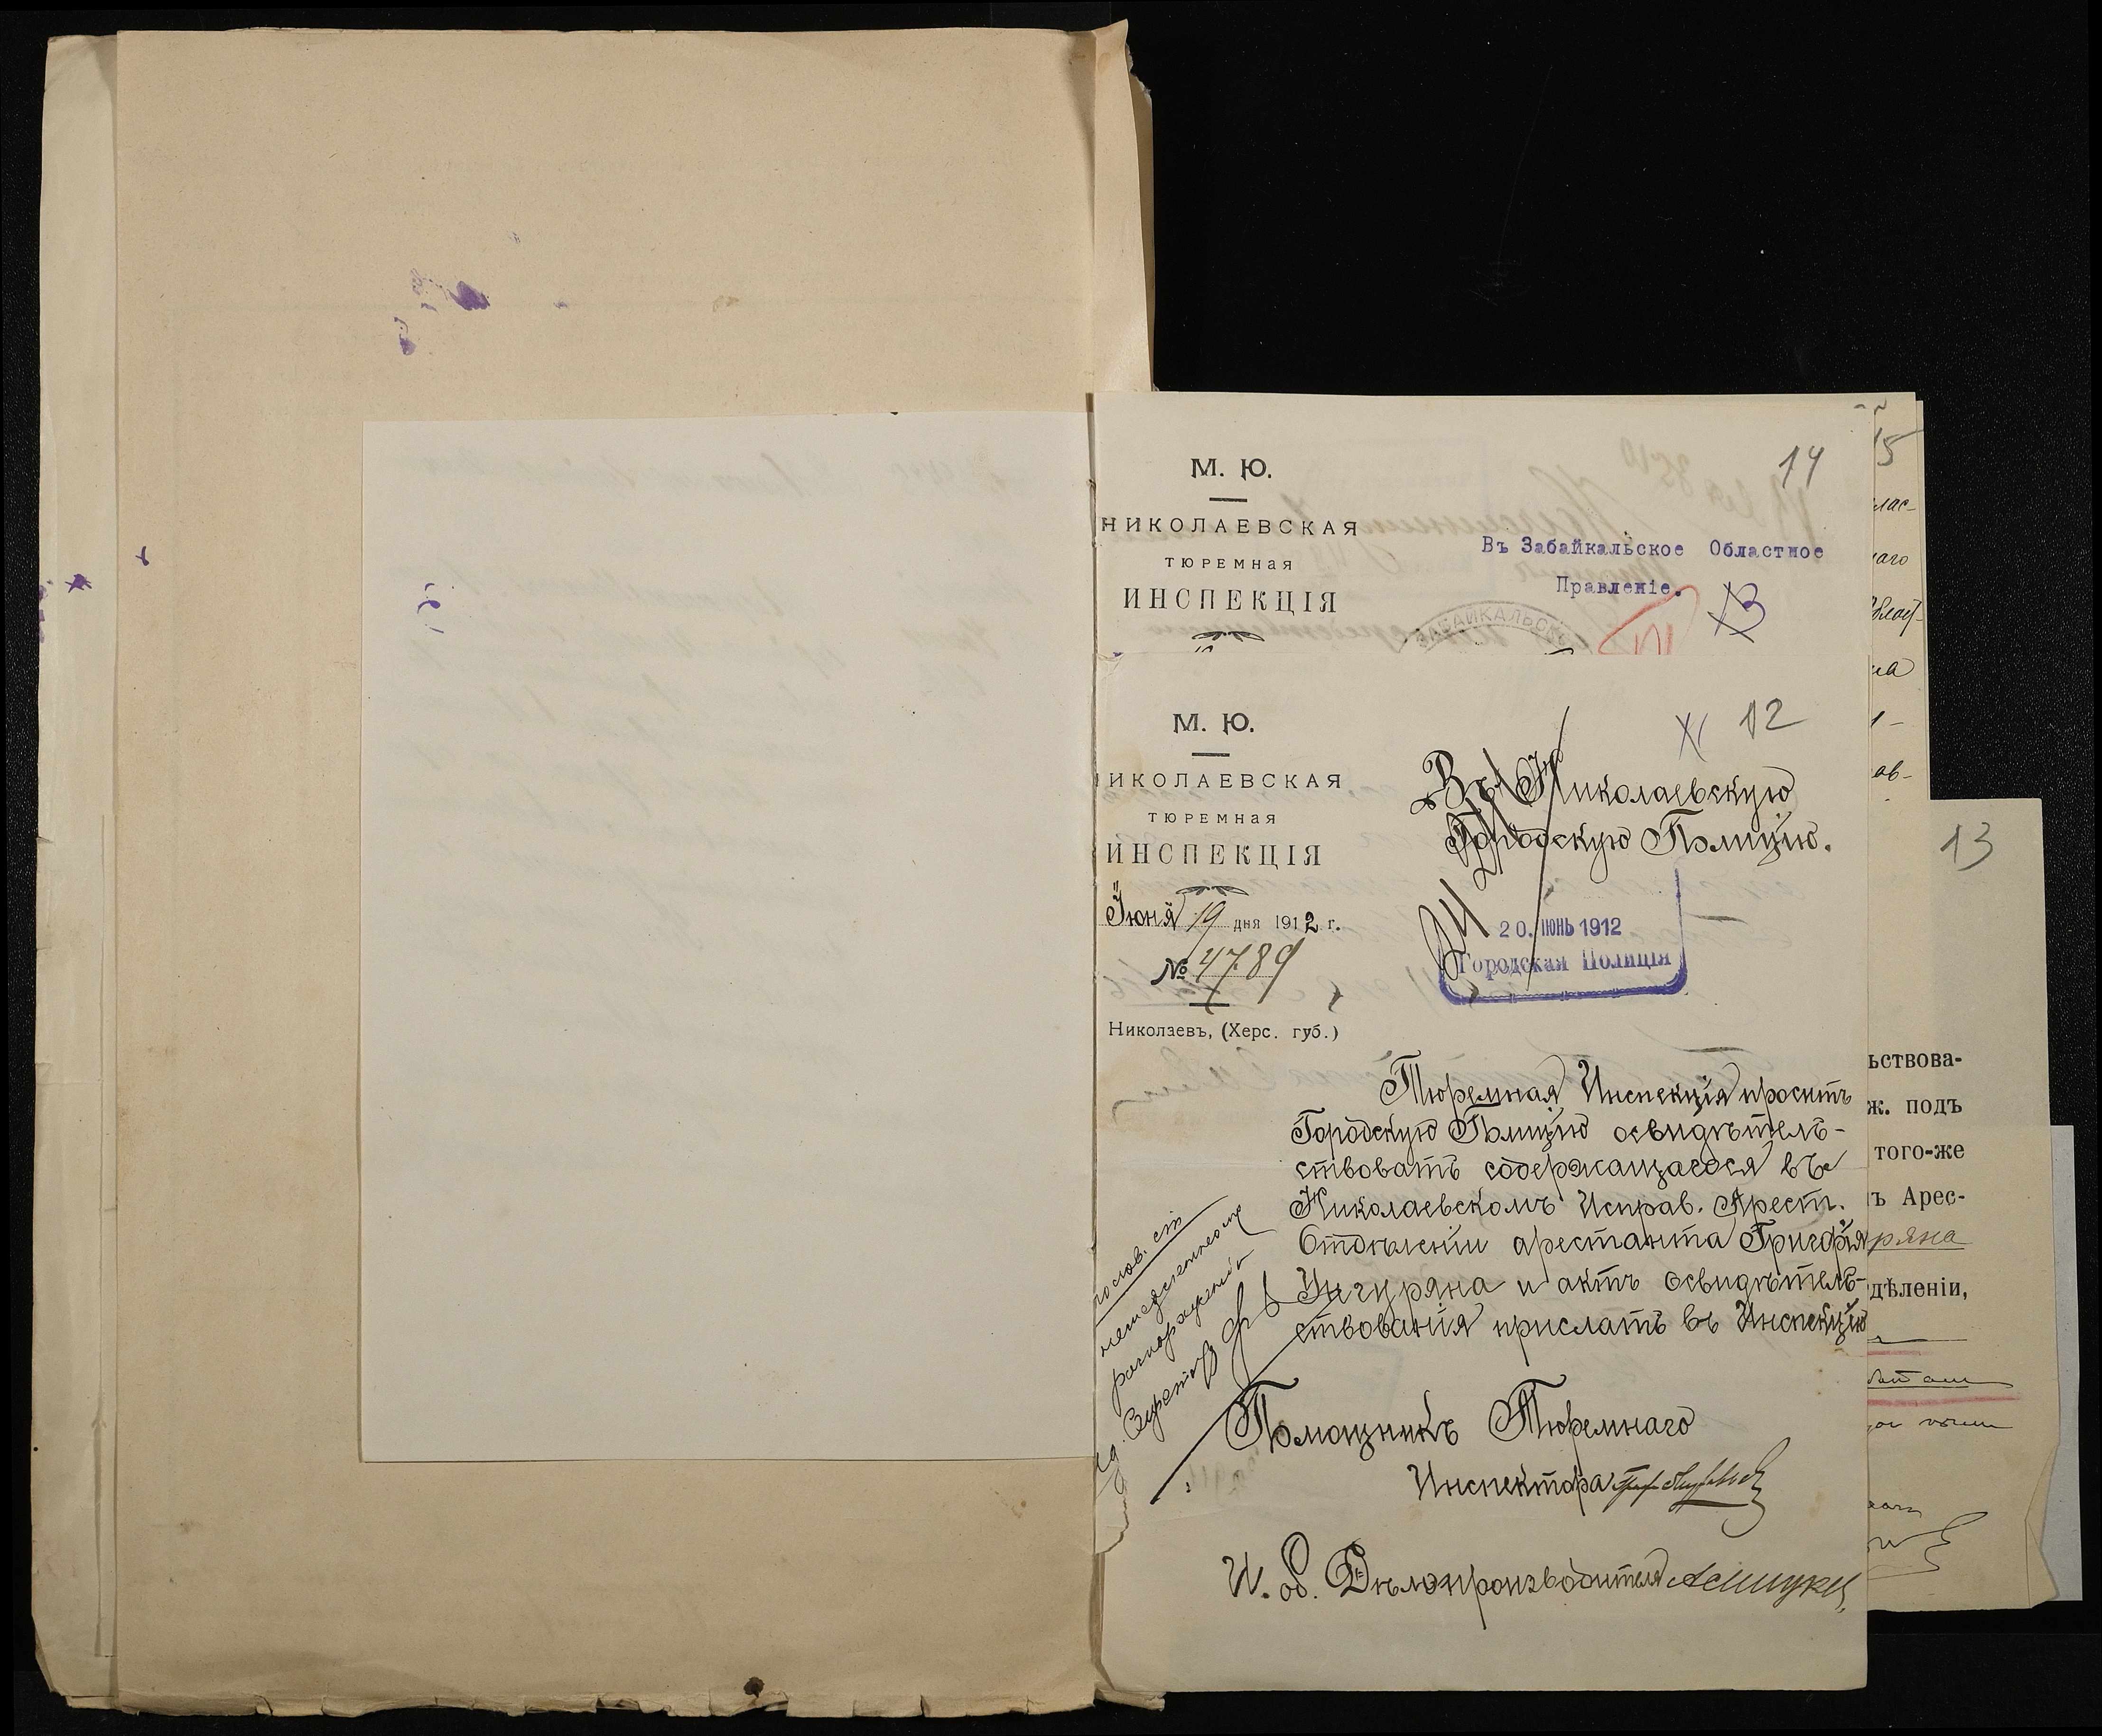 М. Ю.
НИКОЛАЕВСКАЯ
ТЮРЕМНАЯ
ИНСПЕКЦІЯ
14
Въ Забайкальское Областное
Правленіе.
ЗАБАЙКАЛЬСК
М. Ю.
ИКОЛАЕВСКАЯ
ТЮРЕМНАЯ
ИНСПЕКЦІЯ
Іюня 19 дня 1912 г.
№ 4789
Николаевъ, (Херс. губ.)
12
Въ Николаевскую
Городскую Полицію.
20. ІЮНЬ 1912
Городская Полиція
Тюремная Инспекція проситъ
Городскую Полицію освидѣтель-
ствовать содержащагося въ
Николаевскомъ Исправ. Арест.
Отдѣленіи арестанта Григорія
Унгуряна и актъ освидѣтель-
ствованія прислать въ Инспекцію
Помощникъ Тюремнаго
Инспектора
И. об. Дѣлопроизводителя
15
лас-
аго
на
ав-
13
ьствова-
ж. подъ
того-же
ъ Арес-
ряна
дѣленіи,